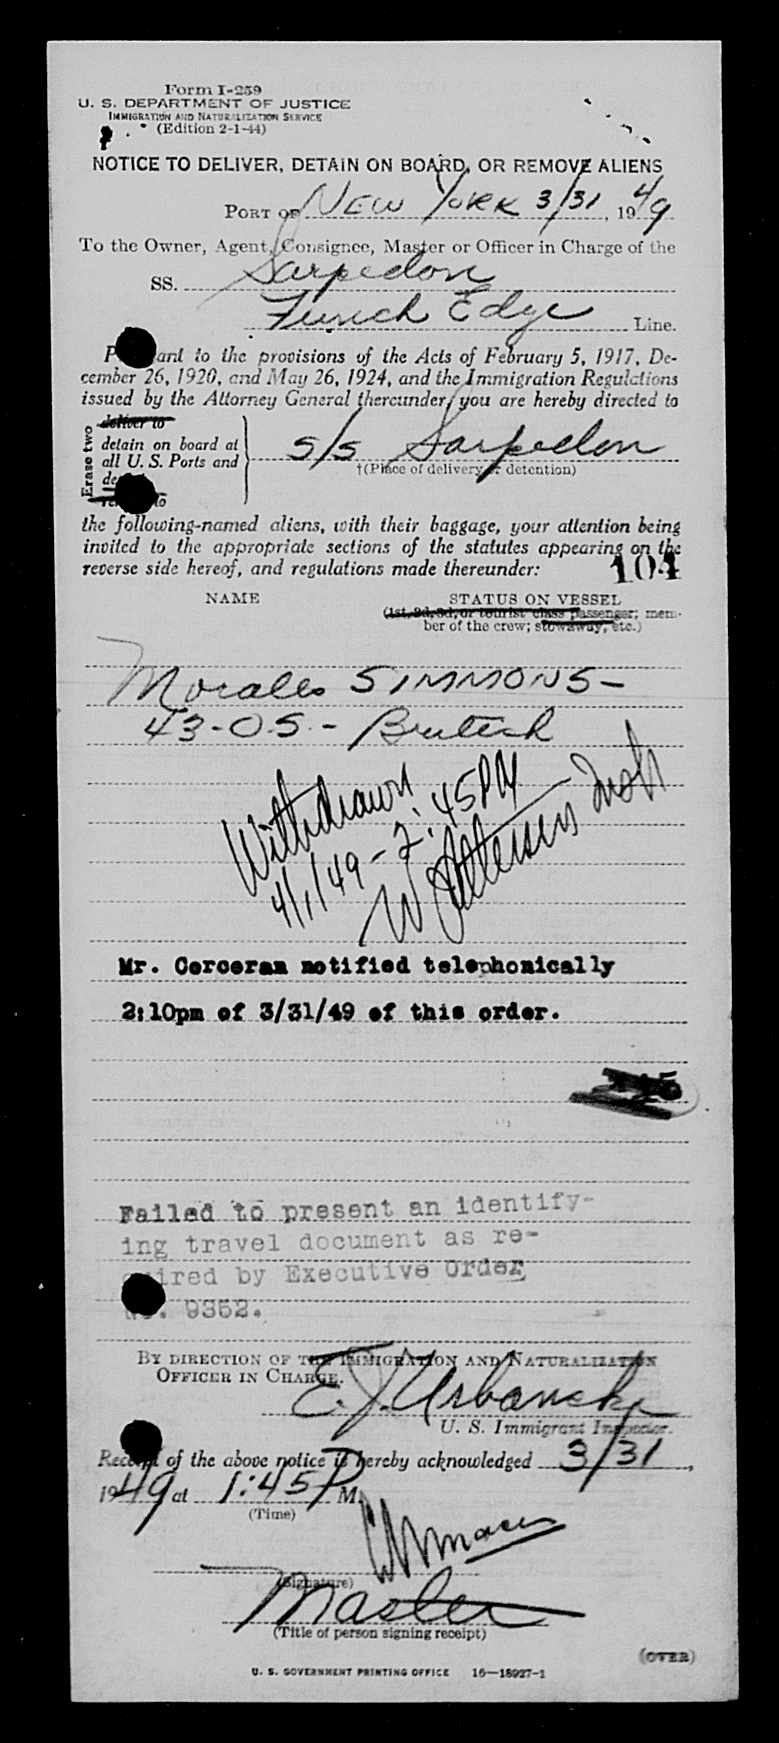 Form I-259
U. S. DEPARTMENT OF JUSTICE
IMMIGRATION AND NATURALIZATION SERVICE
(Edition 2-1-44)
NOTICE TO DELIVER, DETAIN ON BOARD, OR REMOVE ALIENS
PORT OF NEW YORK 3/31, 1949
To the Owner, Agent, Consignee, Master or Officer in Charge of the
SS. Sarpedon
Funch Edye Line.
P ant to the provisions of the Acts of February 5, 1917, De-
cember 26, 1920, and May 26, 1924, and the Immigration Regulations
issued by the Attorney General thereunder, you are hereby directed to
Erase two
deliver to
detain on board at
all U. S. Ports and
de
to
S/S Sarpedon
†(Place of delivery or detention)
the following-named aliens, with their baggage, your attention being
invited to the appropriate sections of the statutes appearing on the
reverse side hereof, and regulations made thereunder:
104
NAME STATUS ON VESSEL
(1st, 2d, 3d, or tourist class passenger; mem-
ber of the crew; stowaway, etc.)
Morales SIMMONS-
43-O.S.- British
Withdrawn
4/1/49 - 2:45PM
W Patterson Insp
Mr. Corceran notified telephonically
2:10pm of 3/31/49 of this order.
Failed to present an identify-
ing travel document as re-
uired by Executive Order
No. 9352.
BY DIRECTION OF THE IMMIGRATION AND NATURALIZATION
OFFICER IN CHARGE.
E. J. Urbanski
U. S. Immigrant Inspector.
Receipt of the above notice is hereby acknowledged 3/31,
1949 at 1:45 P M.
(Time)
(Signature)
Master
(Title of person signing receipt)
(OVER)
U. S. GOVERNMENT PRINTING OFFICE 16—18927-1